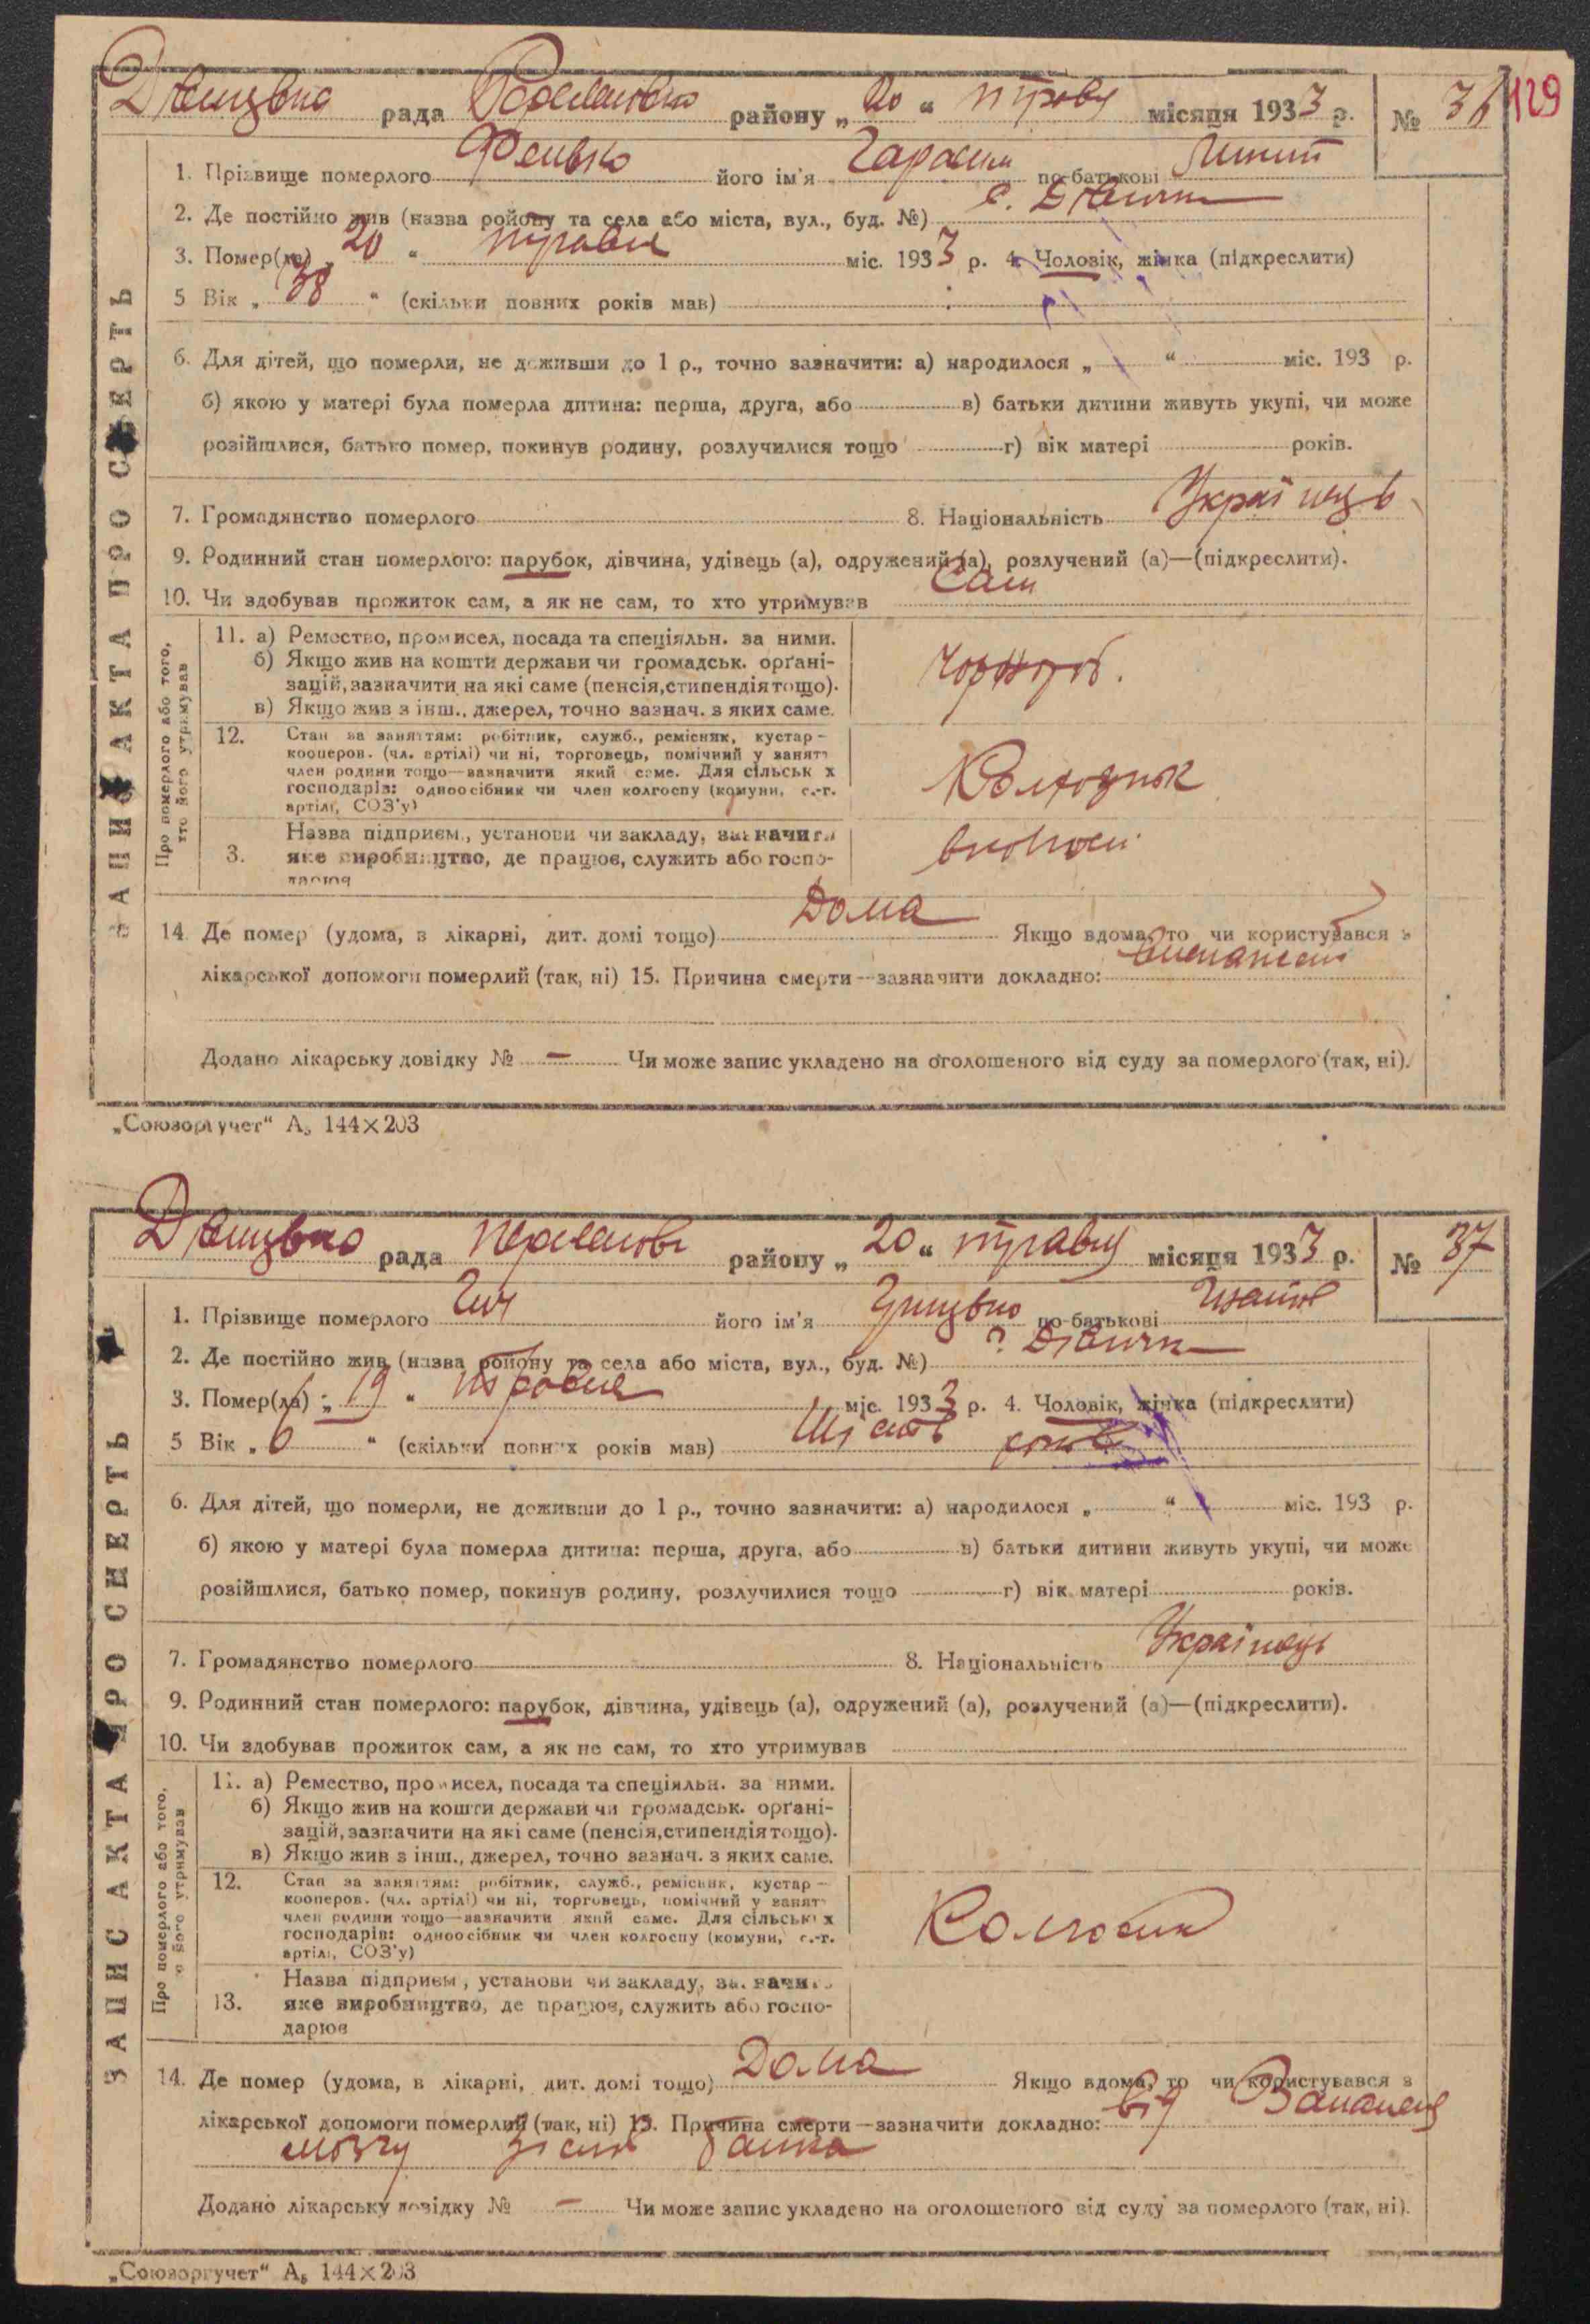 рада району „ 20 “ місяця 1933 р. № 36 129
1. Прізвище померлого його ім'я Гарасим по-батькові
2. Де постійно жив (назва району та села або міста, вул., буд. №) с.
3. Помер(ла) „ 20 “ травня міс. 1933 р. 4. Чоловік, жінка (підкреслити)
5 Вік „ 38 “ (скільки повних років мав)
6. Для дітей, що померли, не доживши до 1 р., точно зазначити: а) народилося „ “ міс. 193 р.
б) якою у матері була померла дитина: перша, друга, або в) батьки дитини живуть укупі, чи може
розійшлися, батько помер, покинув родину, розлучилися тощо г) вік матері років.
7. Громадянство померлого 8. Національність Українець
9. Родинний стан померлого: парубок, дівчина, удівець (а), одружений (а), розлучений (а)—(підкреслити).
10. Чи здобував прожиток сам, а як не сам, то хто утримував Сам
ЗАПИС АКТА ПРО СМЕРТЬ
Про померлого або того, хто його утримував
11. а) Ремество, промисел, посада та спеціяльн. за ними.
б) Якщо жив на кошти держави чи громадськ. орґані-
зацій, зазначити на які саме (пенсія, стипендія тощо).
в) Якщо жив з інш., джерел, точно зазнач. з яких саме.
Чорнороб.
12. Стан за заняттям: робітник, служб., ремісник, кустар—
кооперов. (чл. артілі) чи ні, торговець, помічний у занятт
член родини тощо—зазначити який саме. Для сільськ х
господарів: одноосібник чи член колгоспу (комуни, с.-г.
артілі, СОЗ'у)
Колхозник
3. Назва підприєм., установи чи закладу, зазначити
яке виробництво, де працює, служить або госпо-
дарює
14. Де помер (удома, в лікарні, дит. домі тощо) Дома Якщо вдома, то чи користувався з
лікарської допомоги померлий (так, ні) 15. Причина смерти—зазначити докладно:
Додано лікарську довідку № — Чи може запис укладено на оголошеного від суду за померлого (так, ні).
„Союзоргучет“ А₅ 144×203
рада району „ 20 “ травня місяця 1933 р. № 37
1. Прізвище померлого його ім'я по-батькові
2. Де постійно жив (назва району та села або міста, вул., буд. №)
3. Помер(ла) „ 19 “ травня міс. 1933 р. 4. Чоловік, жінка (підкреслити)
5 Вік „ 6 “ (скільки повних років мав) Шість
6. Для дітей, що померли, не доживши до 1 р., точно зазначити: а) народилося „ “ міс. 193 р.
б) якою у матері була померла дитина: перша, друга, або в) батьки дитини живуть укупі, чи може
розійшлися, батько помер, покинув родину, розлучилися тощо г) вік матері років.
7. Громадянство померлого 8. Національність Українець
9. Родинний стан померлого: парубок, дівчина, удівець (а), одружений (а), розлучений (а)—(підкреслити).
10. Чи здобував прожиток сам, а як не сам, то хто утримував
ЗАПИС АКТА ПРО СМЕРТЬ
Про померлого або того, хто його утримував
11. а) Ремество, промисел, посада та спеціяльн. за ними.
б) Якщо жив на кошти держави чи громадськ. орґані-
зацій, зазначити на які саме (пенсія, стипендія тощо).
в) Якщо жив з інш., джерел, точно зазнач. з яких саме.
12. Стан за заняттям: робітник, служб., ремісник, кустар—
кооперов. (чл. артілі) чи ні, торговець, помічний у занятт
член родини тощо—зазначити який саме. Для сільськ х
господарів: одноосібник чи член колгоспу (комуни, с.-г.
артілі, СОЗ'у)
13. Назва підприєм., установи чи закладу, зазначити
яке виробництво, де працює, служить або госпо-
дарює
14. Де помер (удома, в лікарні, дит. домі тощо) Дома Якщо вдома, то чи користувався з
лікарської допомоги померлий (так, ні) 15. Причина смерти—зазначити докладно: від
мозгу
Додано лікарську довідку № — Чи може запис укладено на оголошеного від суду за померлого (так, ні).
„Союзоргучет“ А₅ 144×203